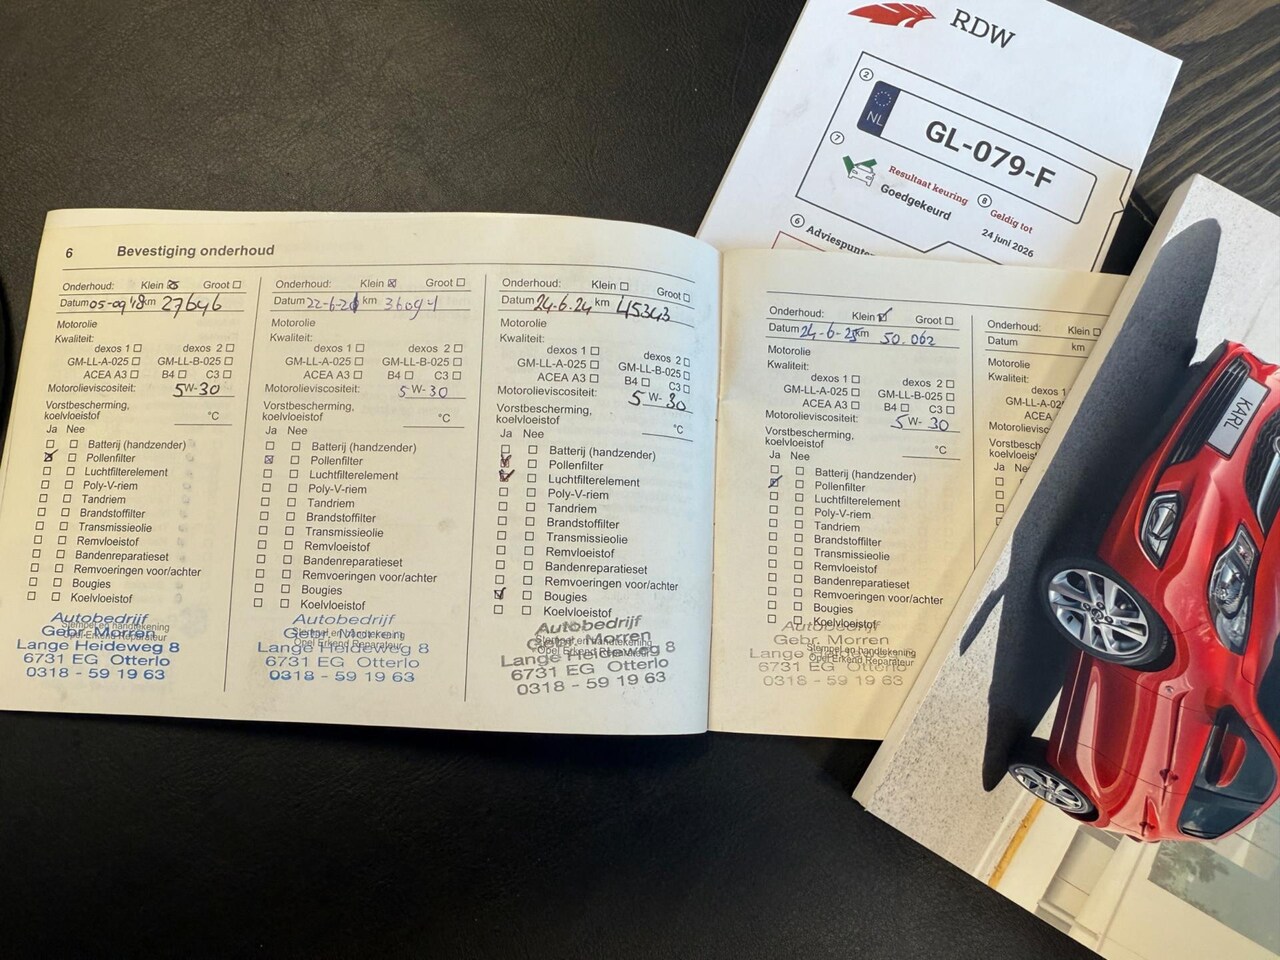 RDW
2
NL
GL-079-F
7
Resultaat keuring
Goedgekeurd
8
Geldig tot
24 juni 2026
6
Adviespunten
6 Bevestiging onderhoud
Onderhoud: Klein Groot
Datum 05-09-'18 km 27646
Motorolie
Kwaliteit:
dexos 1 dexos 2
GM-LL-A-025 GM-LL-B-025
ACEA A3 B4 C3
Motorolieviscositeit: 5W-30
Vorstbescherming,
koelvloeistof °C
Ja Nee
Batterij (handzender)
Pollenfilter
Luchtfilterelement
Poly-V-riem
Tandriem
Brandstoffilter
Transmissieolie
Remvloeistof
Bandenreparatieset
Remvoeringen voor/achter
Bougies
Koelvloeistof
Stempel en handtekening
Opel Erkend Reparateur
Autobedrijf
Gebr. Morren
Lange Heideweg 8
6731 EG Otterlo
0318 - 59 19 63
Onderhoud: Klein Groot
Datum km
Motorolie
Kwaliteit:
dexos 1 dexos 2
GM-LL-A-025 GM-LL-B-025
ACEA A3 B4 C3
Motorolieviscositeit: 5W-30
Vorstbescherming,
koelvloeistof °C
Ja Nee
Batterij (handzender)
Pollenfilter
Luchtfilterelement
Poly-V-riem
Tandriem
Brandstoffilter
Transmissieolie
Remvloeistof
Bandenreparatieset
Remvoeringen voor/achter
Bougies
Koelvloeistof
Stempel en handtekening
Opel Erkend Reparateur
Autobedrijf
Gebr. Morren
Lange Heideweg 8
6731 EG Otterlo
0318 - 59 19 63
Onderhoud: Klein Groot
Datum 24-6-24 km 45343
Motorolie
Kwaliteit:
dexos 1 dexos 2
GM-LL-A-025 GM-LL-B-025
ACEA A3 B4 C3
Motorolieviscositeit: 5W-30
Vorstbescherming,
koelvloeistof °C
Ja Nee
Batterij (handzender)
Pollenfilter
Luchtfilterelement
Poly-V-riem
Tandriem
Brandstoffilter
Transmissieolie
Remvloeistof
Bandenreparatieset
Remvoeringen voor/achter
Bougies
Koelvloeistof
Stempel en handtekening
Opel Erkend Reparateur
Autobedrijf
Gebr. Morren
Lange Heideweg 8
6731 EG Otterlo
0318 - 59 19 63
Onderhoud: Klein Groot
Datum 24-6-25 km 50.062
Motorolie
Kwaliteit:
dexos 1 dexos 2
GM-LL-A-025 GM-LL-B-025
ACEA A3 B4 C3
Motorolieviscositeit: 5W-30
Vorstbescherming,
koelvloeistof °C
Ja Nee
Batterij (handzender)
Pollenfilter
Luchtfilterelement
Poly-V-riem
Tandriem
Brandstoffilter
Transmissieolie
Remvloeistof
Bandenreparatieset
Remvoeringen voor/achter
Bougies
Koelvloeistof
Stempel en handtekening
Opel Erkend Reparateur
Autobedrijf
Gebr. Morren
Lange Heideweg 8
6731 EG Otterlo
0318 - 59 19 63
Onderhoud: Klein
Datum km
Motorolie
Kwaliteit:
dexos 1
GM-LL-A-02
ACEA
Motorolievisc
Vorstbesch
koelvloeis
Ja Ne
KARL